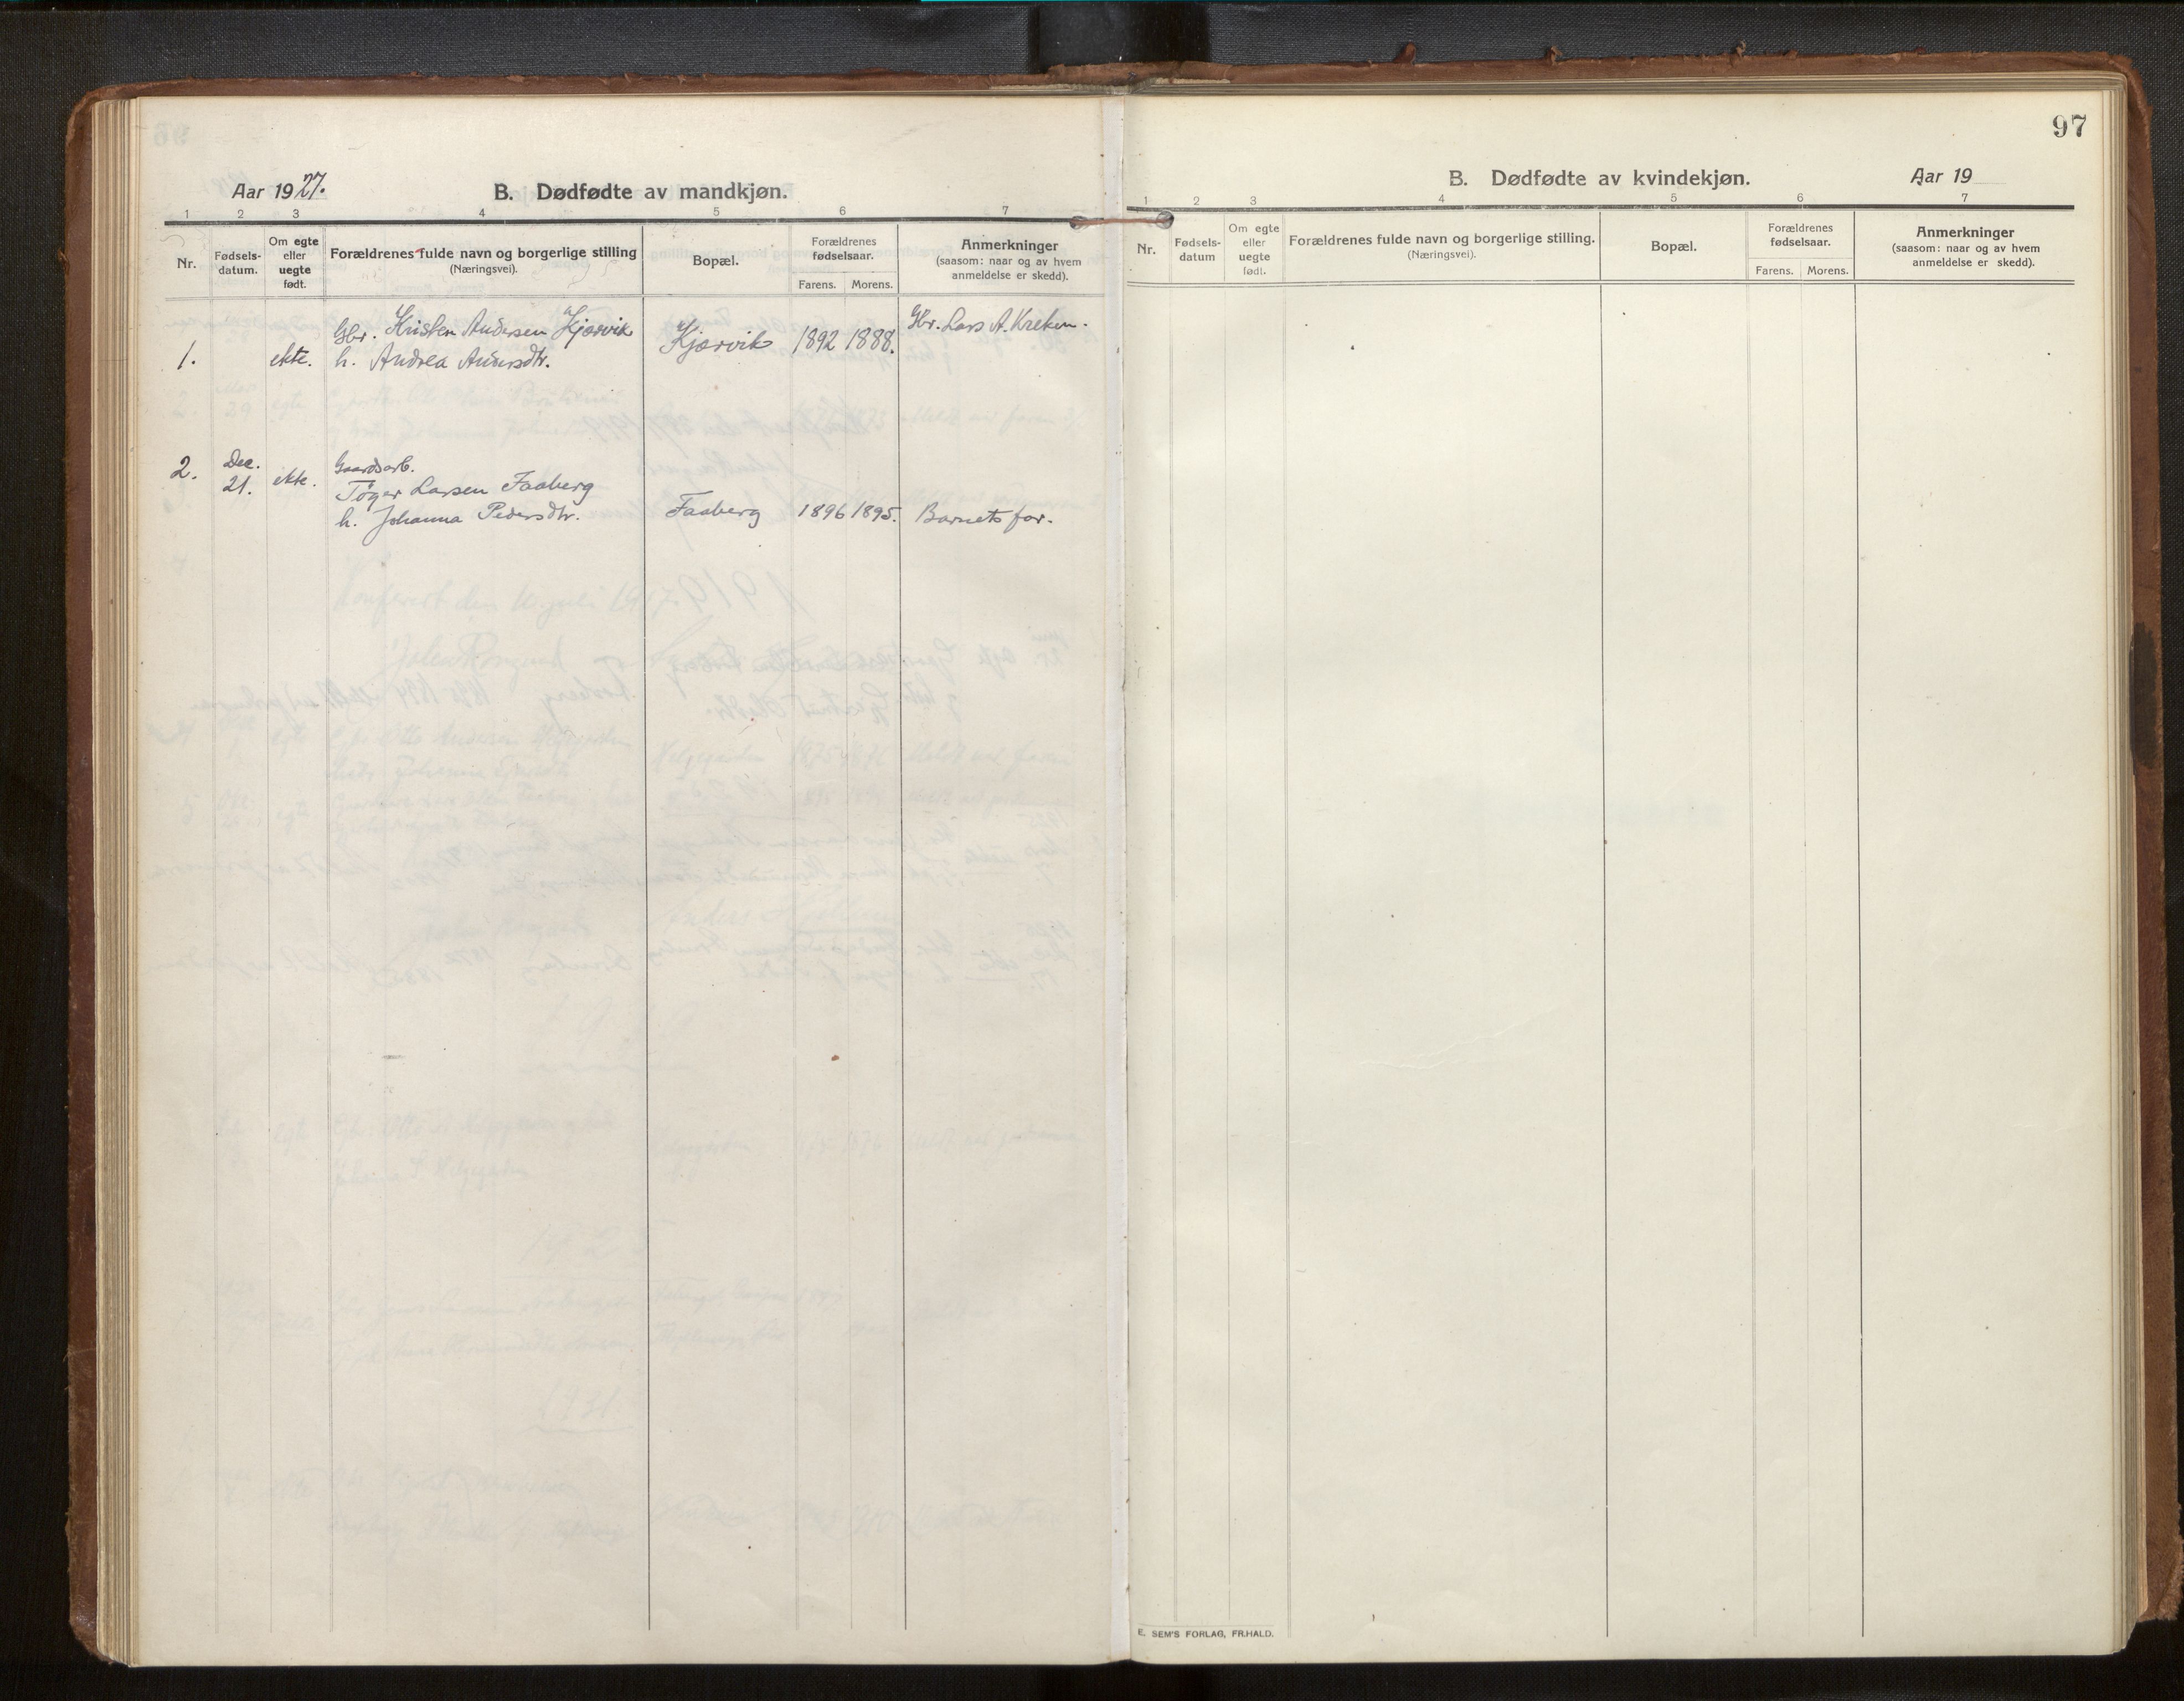 Aar 1927.
B. Dødfødte av mandkjøn.
1 2 3 4 5 6 7
Nr.
Fødsels-
datum.
Om egte
eller
uegte
født.
Forældrenes fulde navn og borgerlige stilling
(Næringsvei).
Bopæl.
Forældrenes
fødselsaar.
Farens. Morens.
Anmerkninger
(saasom: naar og av hvem
anmeldelse er skedd).
Gbr. Kristen Andersen Kjærvik Kjærvik 1892 1888. Gbr. Lars A. Kreken.
1. ekte. h. Andrea Andersdtr.
2. Dec. ekte. Gaardsarb.
21. Tøger Larsen Faaberg
h. Johanna Pedersdtr. Faaberg 1896 1895. Barnets far.
97
B. Dødfødte av kvindekjøn.
Aar 19
1 2 3 4 5 6 7
Nr.
Fødsels-
datum
Om egte
eller
uegte
født.
Forældrenes fulde navn og borgerlige stilling.
(Næringsvei).
Bopæl.
Forældrenes
fødselsaar.
Farens. Morens.
Anmerkninger
(saasom: naar og av hvem
anmeldelse er skedd).
E. SEM'S FORLAG, FR.HALD.